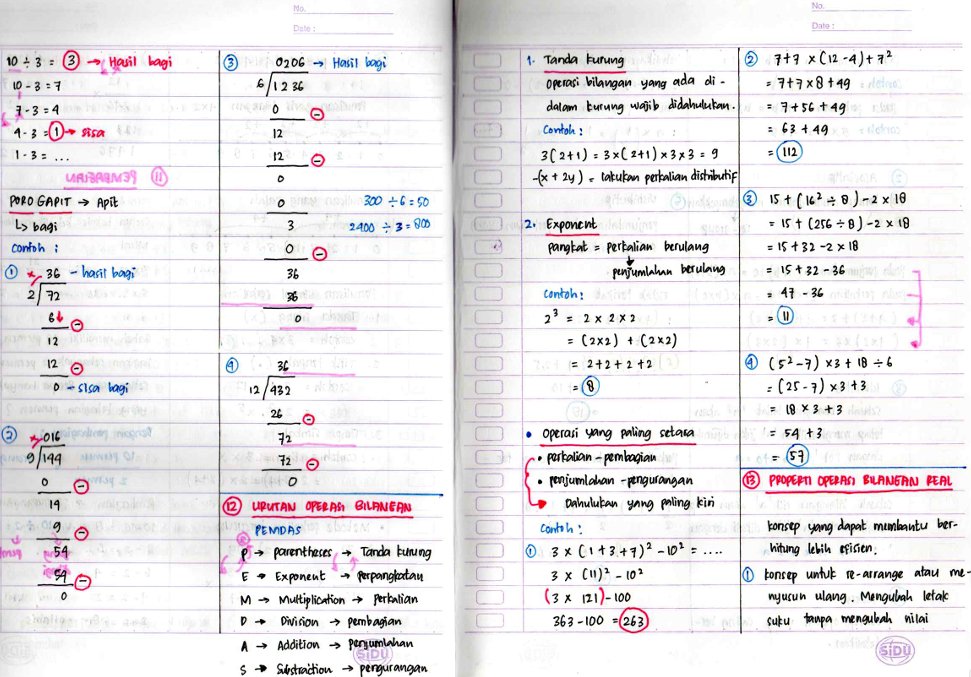 No.
Date :
10 ÷ 3 = 3 → Hasil bagi
10 - 3 = 7
7 - 3 = 4
4 - 3 = 1 → sisa
1 - 3 = ...
11 PEMBAGIAN
PORO GAPIT → Apit
↳ bagi
Contoh :
1 36 - hasil bagi
2/72
6 -
12
12 -
0 - sisa bagi
2 016
9/144
0 -
14
9 -
54
54 -
0
3 0206 → Hasil bagi
6/1236
0 -
12
12 -
0
0 300 ÷ 6 = 50
3 2400 ÷ 3 = 800
0 -
36
36
0
4 36
12/432
26 -
72
72 -
0
12 URUTAN OPERASI BILANGAN
PEMDAS
P → parentheses → Tanda kurung
E → Exponent → perpangkatan
M → Multiplication → perkalian
D → Division → pembagian
A → Addition → penjumlahan
S → Substraction → pengurangan
SIDU
No.
Date :
1. Tanda kurung
operasi bilangan yang ada di-
dalam kurung wajib didahulukan.
Contoh :
3(2+1) = 3×(2+1)×3×3 = 9
-(x + 2y) = lakukan perkalian distributif
2. Exponent
pangkat = perkalian berulang
↓
penjumlahan berulang
Contoh:
2³ = 2 × 2 × 2
= (2×2) + (2×2)
= 2+2+2+2
= 8
• Operasi yang paling setara
• perkalian - pembagian
• penjumlahan - pengurangan
Dahulukan yang paling kiri
Contoh :
1 3 × (1+3+7)² - 10² = ....
3 × (11)² - 10²
(3 × 121) - 100
363 - 100 = 263
2 7+7 × (12-4) + 7²
= 7+7 × 8 + 49
= 7 + 56 + 49
= 63 + 49
= 112
3 15 + (16² ÷ 8) - 2 × 18
= 15 + (256 ÷ 8) - 2 × 18
= 15 + 32 - 2 × 18
= 15 + 32 - 36
= 47 - 36
= 11
4 (5² - 7) × 3 + 18 ÷ 6
= (25 - 7) × 3 + 3
= 18 × 3 + 3
= 54 + 3
= 57
13 PROPERTI OPERASI BILANGAN REAL
konsep yang dapat membantu ber-
hitung lebih efisien.
1 konsep untuk re-arrange atau me-
nyusun ulang. Mengubah letak
suku tanpa mengubah nilai
SIDU